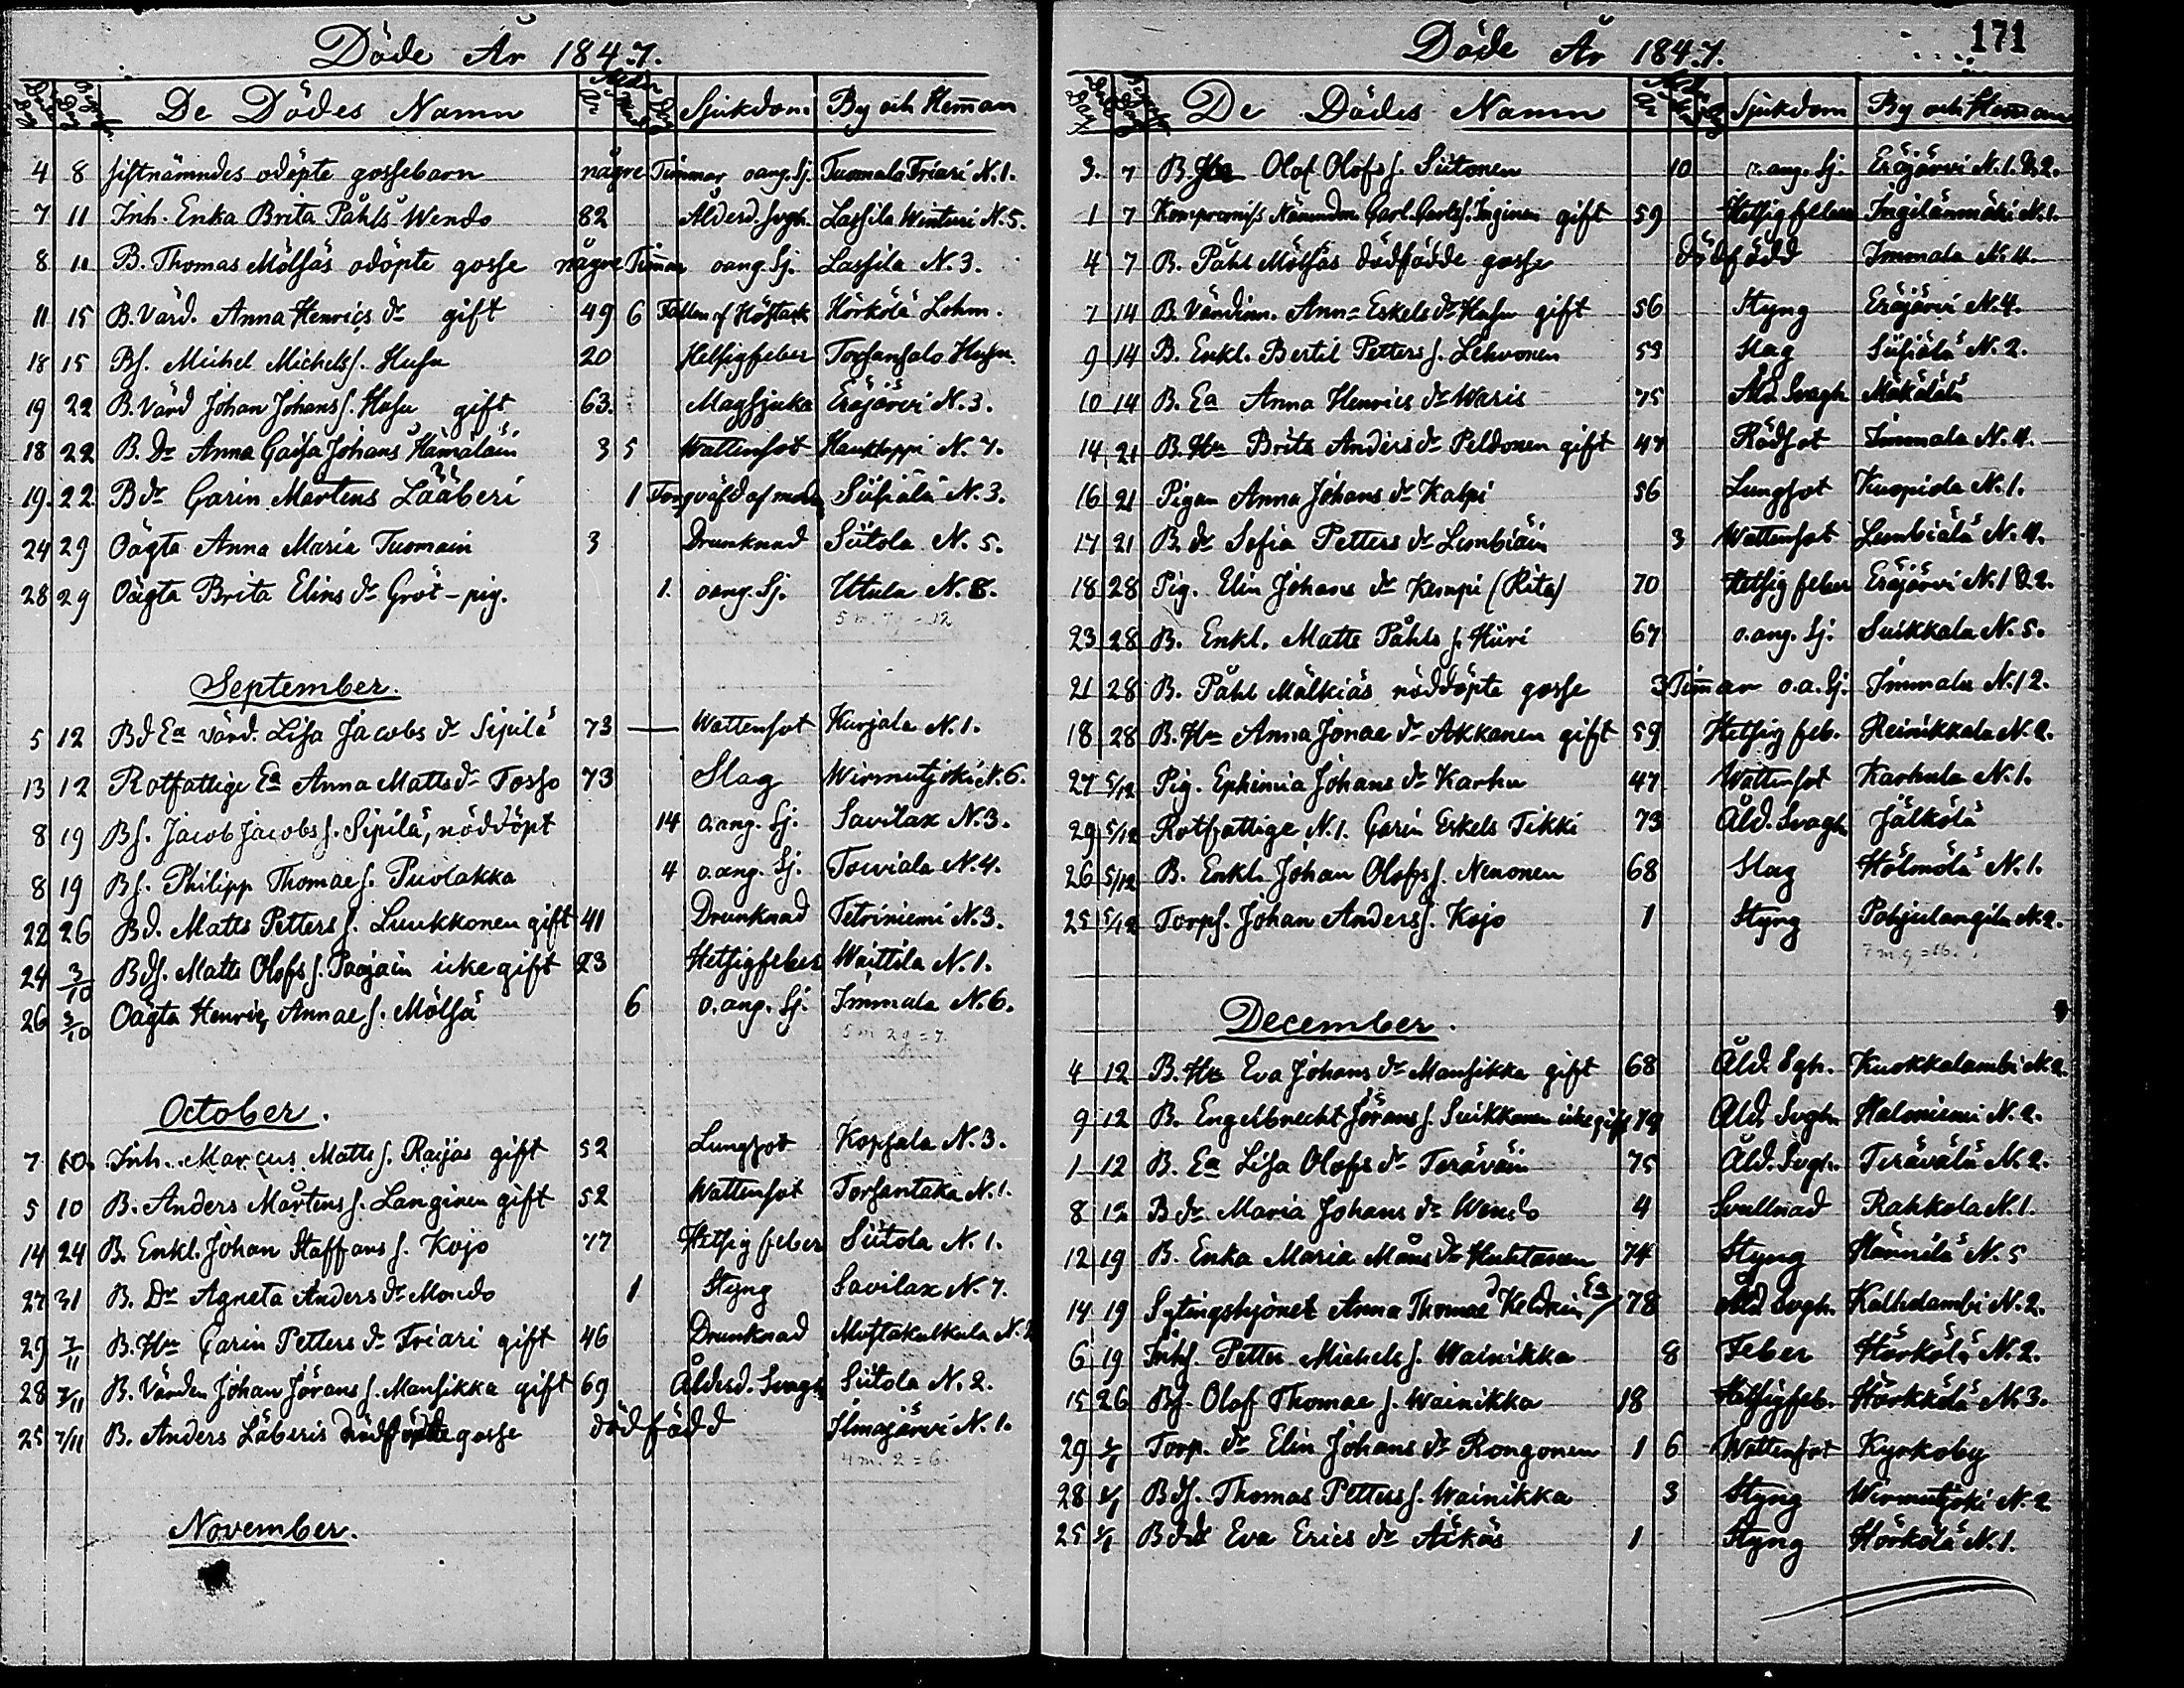 Döde År 1847.
De Dödes Namn År Sjukdom By och Hem̄an
4 8 sistnämndes odöpte gossebarn några Tim̄mar oang. Sj. Tuomala Friari N. 1.
7 11 Inh. Enka Brita Påhls Wendo 82 Ålderd. svgh. Lassila Wenturi N. 5.
8 11 B. Thomas Mölsäs odöpte gosse några Tim̄ar oang. Sj. Lassila N. 3.
11 15 B. Värd. Anna Henrics dr gift 49 6 Fallen af Höstack Hörkölä Lohm.
18 15 Bs. Michel Michelss. Husu 20 Hetsigfeber Torsansalo Husu
19 22 B. Värd Johan Johans s. Husu gift 63. Magsjuka Eräjärvi N. 3.
18 22 B. Dr Anna Caisa Johans Hämäläin 3 5 Wattensot Haukkoppi N. 7.
19. 22 B dr Carin Mårtens Lääberi 1 af modr Siisiälä N. 3.
24 29 Oägta Anna Maria Tuomain 3 Drunknad Siitola N. 5.
28 29 Oägta Brita Elins dr Gröt-pig. 1. oang. Sj. Utula N. 8.
5 m. 7 = 12
September.
5 12 Bd Ea värd. Lisa Jacobs dr Sipilä 73 — Wattensot Kurjala N. 1.
13 12 Rotfattige Ea Anna Matts dr Tosso 73 Slag Wirmutjoki N. 6.
8 19 Bs. Jacob Jacobs s. Sipilä, nöddöpt 14 o.ang. Sj. Savilax N. 3.
8 19 Bs. Philipp Thomae s. Puolakka 4 o.ang. Sj. Toiviala N. 4.
22 26 Bd. Matts Petters s. Luukkonen gift 41 Drunknad Tetriniemi N. 3.
24 3/10 Bds. Matts Olofs s. Paajain icke gift 23 Hetsigfeber Waittila N. 1.
26 3/10 Oägta Henric Annae s. Mölsä 6 o.ang. Sj. Immala N. 6.
5 m 2 q = 7.
October.
7 10. Inh. Marcus Matts s. Raijas gift 52 Lungsot Kopsala N. 3.
5 10 B. Anders Mårtens s. Langinen gift 52 Wattensot Torsantaka N. 1.
14 24 B. Enkl. Johan Staffans s. Kojo 77 Hetsig feber Siitola N. 1.
27 31 B. Dr Agneta Anders dr Mondo 1 Styng Savilax N. 7.
29 7/11 B. Hu Carin Petters dr Friari gift 46 Drunknad
28 7/11 B. Värden Johan Jörans s. Mansikka gift 69 Ålderd. Svagh Siitola N. 2.
25 7/11 B. Anders Läberis gosse dödfödd Ilmajärvi N. 1.
4 m. 2 = 6.
November.
171
Döde År 1847.
De Dödes Namn År Sjukdom By och Hem̄an
3. 7 B. Olof Olofs s. Siitonen 10 o.ang. Sj. Eräjärvi N. 1. & 2.
1 7 Kompromiss Nämndm. Carl Carls s. Inginen gift 59 Hetsigfeber Ingilänmäki N. 1.
4 7 B. Påhl Mölsäs dödfödde gosse dödfödd Immala N. 4.
7 14 B. Värdinn. Anna Eskels dr Husu gift 56 Styng Eräjärvi N. 4.
9 14 B. Enkl. Bertil Petters s. Lehvonen 59 Slag Siisiälä N. 2.
10 14 B. Ea Anna Henrics dr Waris 75 Åld. Svagh Mäkälälä
14 21 B. Hu Brita Anders dr Peldonen gift 47 Rödsot Immala N. 4.
16 21 Pigan Anna Johans dr Kalpi 56 Lungsot Kuopiola N. 1.
17 21 B. dr Sofia Petters dr Lembiäin 3 Wattensot Lembiälä N. 4.
18 28 Pig. Elin Johans dr Kemppi (Rita) 70 Hetsig feber Eräjärvi N. 1 & 2.
23 28 B. Enkl. Matts Påhls s. Hiiri 67 o.ang. Sj. Suikkala N. 5.
21 28 B. Påhl Mälkiäs nöddöpte gosse 3 Tim̄ar o.a. Sj. Immala N. 12.
18 28 B. Hu Anna Jonae dr Akkanen gift 59 Hetsig feb. Reinikkala N. 2.
27 5/12 Pig. Ephimia Johans dr Karhu 47 Wattensot Karhula N. 1.
29 5/12 Rotfattige N. 1. Carin Eskels Tikki 73 Åld. Svagh Jälkölä
26 5/12 B. Enkl. Johan Olofs s. Nenonen 68 Slag Hölmölä N. 1.
25 5/12 Torps. Johan Anders s. Kojo 1 Styng Pohjalangila N. 2.
7 m. 9 = 16.
December.
4 12 B. Hu Eva Johans dr Mansikka gift 68 Åld. Sgh. Kuokkalambi N. 2.
9 12 B. Engelbrecht Jörans s. Suikkanen icke gift 79 Åld. Svgh. Haloniemi N. 2.
1 12 B. Ea Lisa Olofs dr Teräväin 75 Åld. Svgh. Terävälä N. 2.
8 12 B dr Maria Johans dr Wendo 4 Svullnad Rahkola N. 1.
12 19 B. Enka Maria Måns dr Huhtanen 74 Styng Hännilä N. 5
14 19 Sytingshjonet Anna Thomae dr Keldain Ea 78 Åld. Svgh. Kalholambi N. 2.
6 19 Inhs. Petter Michels s. Wainikka 8 Feber Hörkölä N. 2.
15 26 Bs. Olof Thomae s. Wainikka 18 Hetsigfeb. Hörkkölä N. 3.
29 Torp. dr Elin Johans dr Rongonen 1 6 Wattensot Kyrkoby
28 Bds. Thomas Petters s. Wainikka 3 Styng Wirmutjoki N. 2
25 Bdr Eva Erics dr Äikäs 1 Styng Hörkölä N. 1.